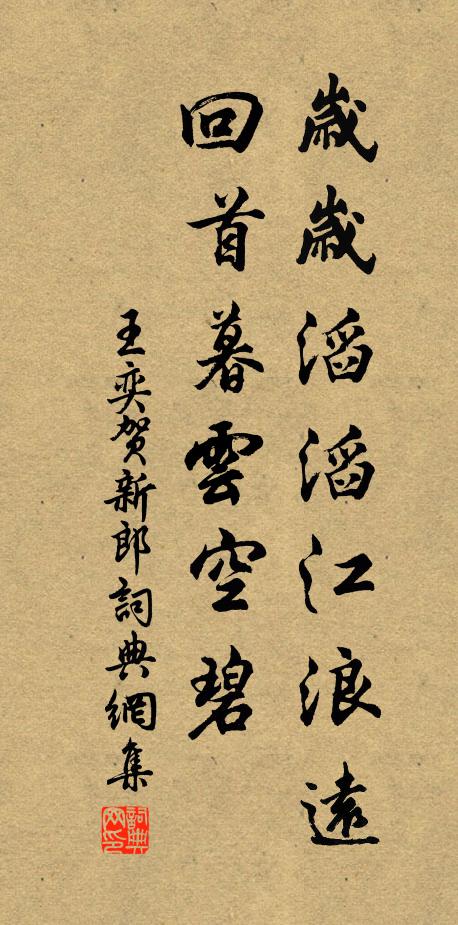 歲歲滔滔江浪遠
回首暮雲空碧
王奕賀新郎詞典網集
詞典網印